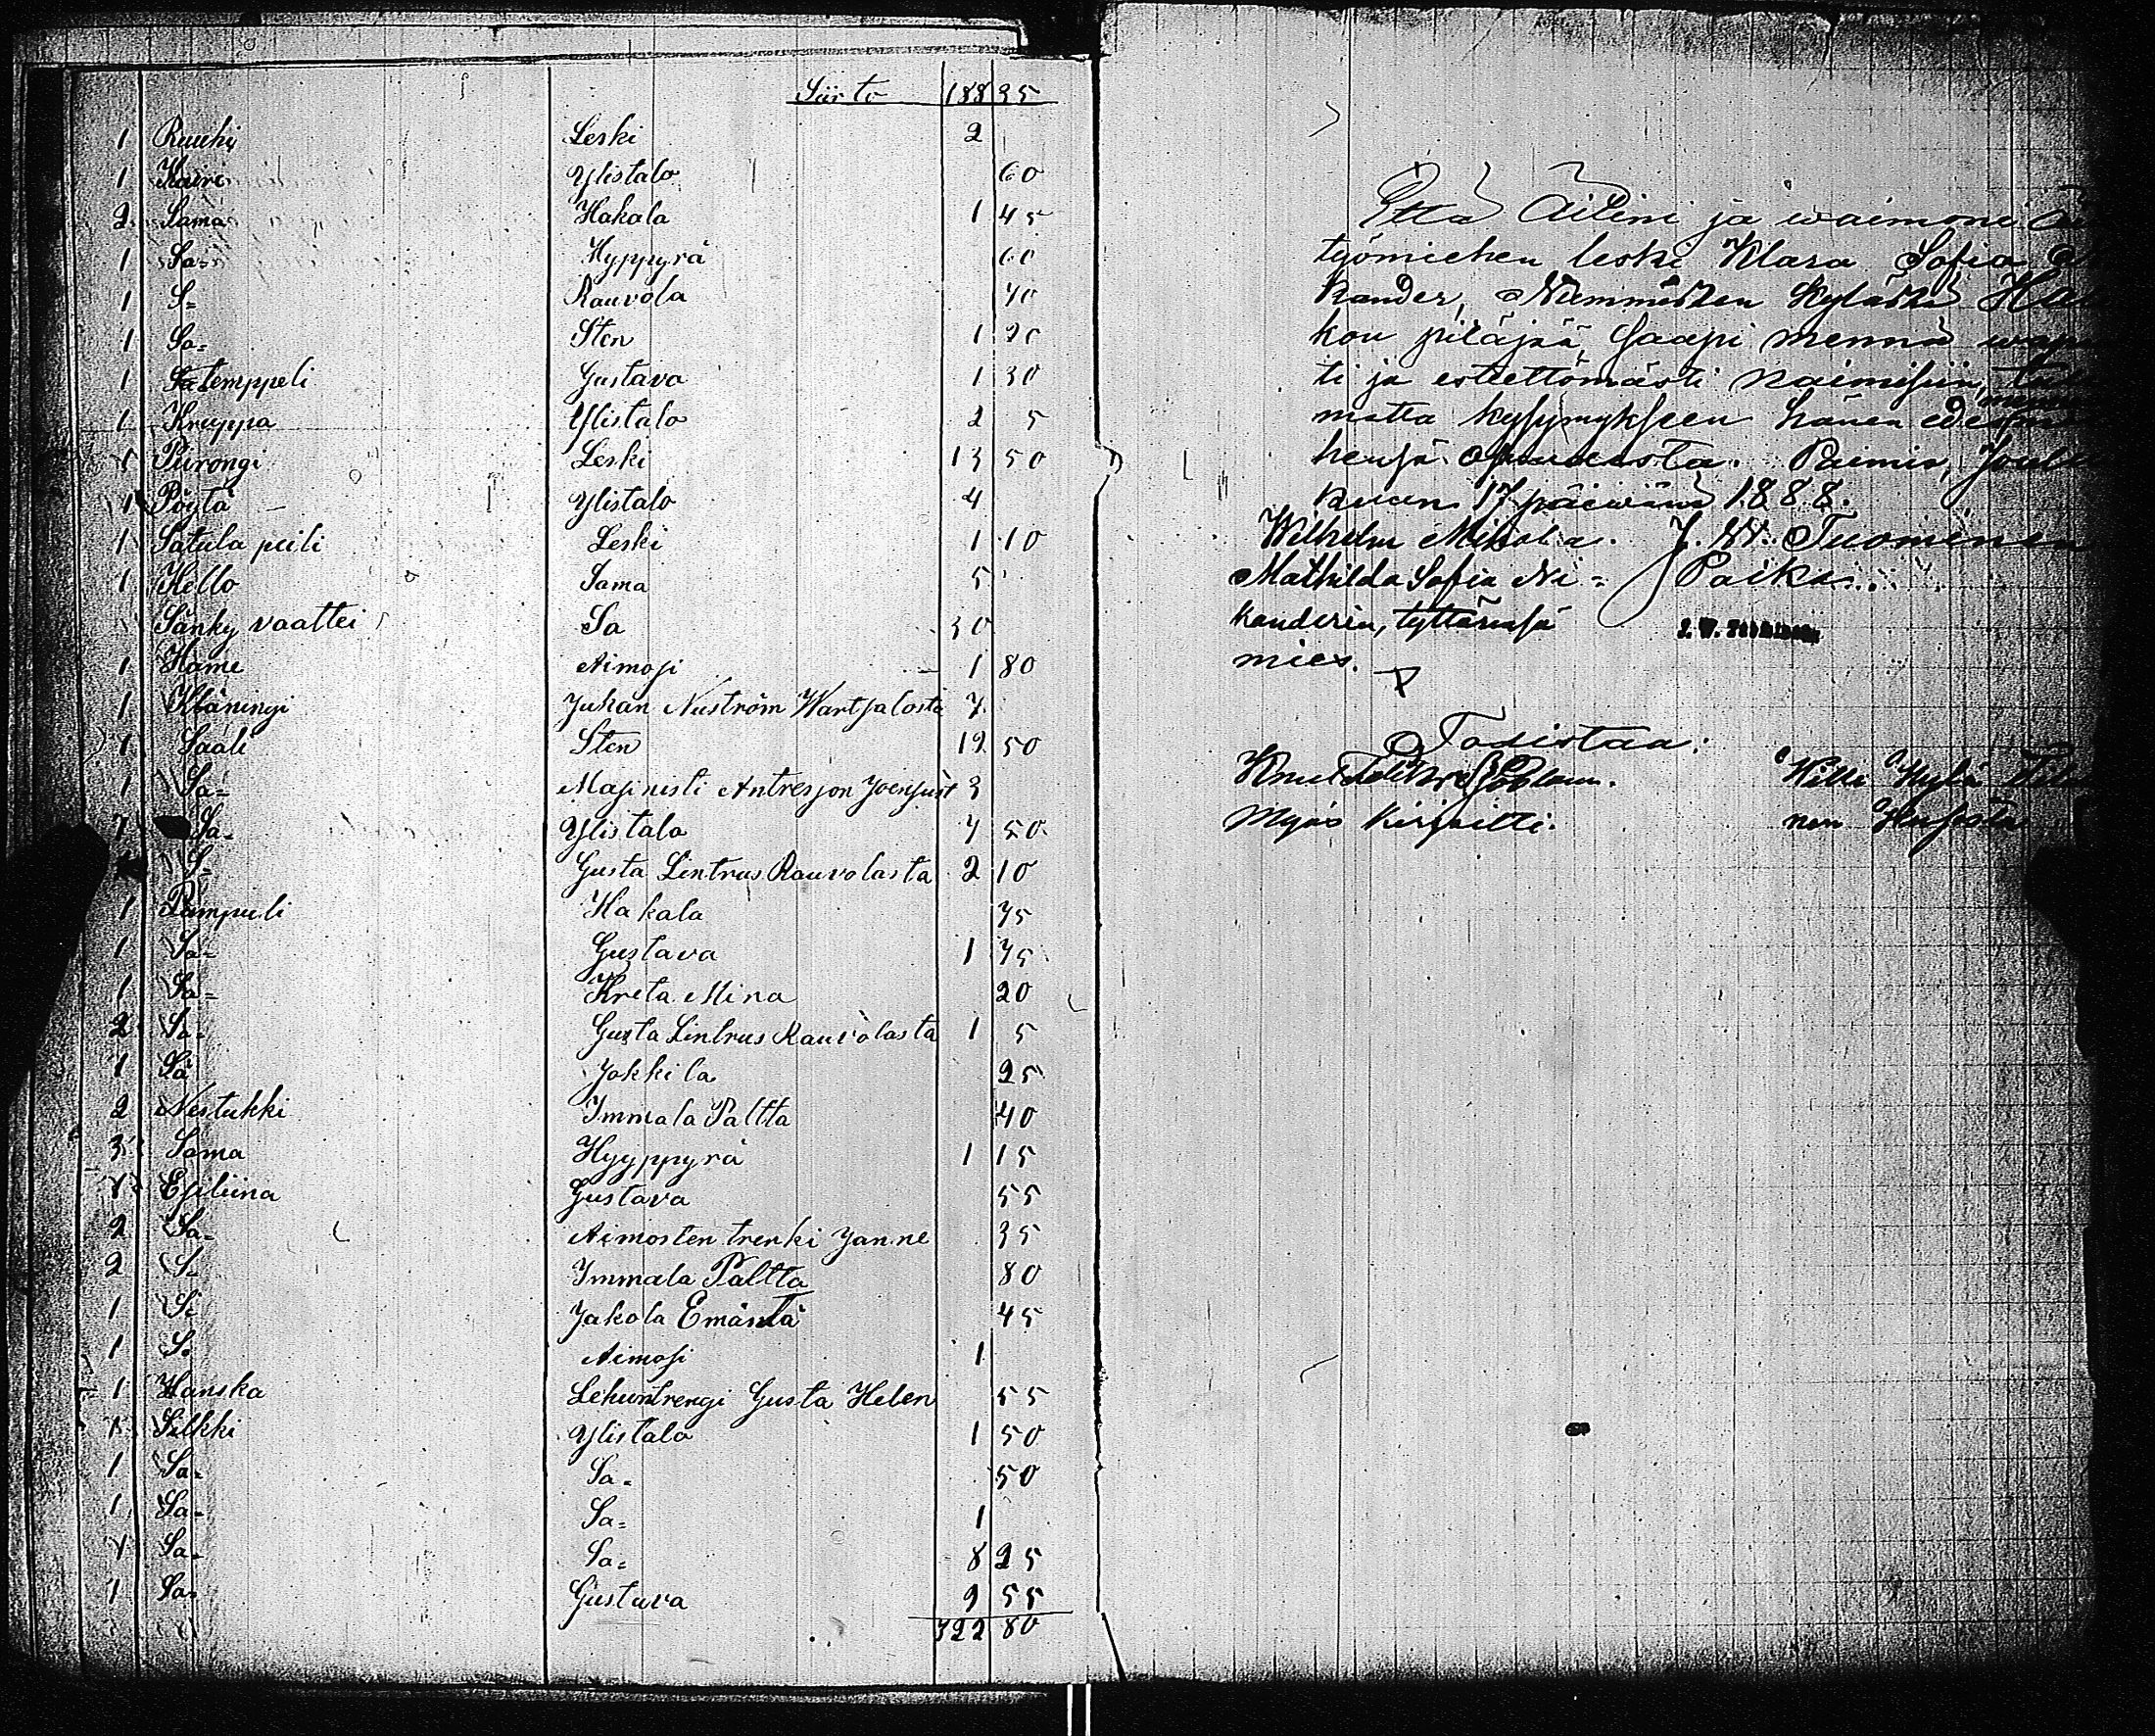 Siirto 188 35
1 Ruuhi Leski 2
1 Kairi Ylistalo 60
2 Sama Hakala 1 45
1 Sa= Hyppyrä 60
1 S= Rauvola 70
1 Sa= Sten 1 20
1 Satemppeli Gustava 1 30
1 Kruppa Ylistalo 2 5
1 Piirongi Leski 13 50
1 Pöytä Ylistalo 4
1 Satula piili Leski 1 10
1 Kello Sama 5
Sänky vaattei Sa 30
1 Hame Aimosi 1 80
1 Kläningi Juhan Nuström Wartsalosta 7
1 Saali Sten 12 50
1 Sa= Masinisti Antresson Joensuu 3
1 Sa= Ylistalo 7 50
S= Gusta Lintrus Rauvolasta 2 10
1 Pumpuli Hakala 75
1 Sa= Gustava 1 75
1 Sa= Kreta Mina 20
2 Sa= Gusta Lintrus Rauvolasta 1 5
1 Sa Jokkila 25
2 Nestukki Immala Paltta 40
3 Sama Hyyppyrä 1 15
Esiliina Gustava 55
2 Sa= Aimosten trenki Janne 35
2 S= Immala Paltta 80
1 S= Jakola Emäntä 45
1 S= Aimosi 1
1 Hanska Lehuntrengi Gusta Helen 55
1 Silkki Ylistalo 1 50
1 Sa= Sa= 50
1 Sa= Sa= 1
1 Sa= Sa= 8 25
1 Sa= Gustava 9 55
322 80
Että Äitini ja waimoni
työmiehen leski Klara Sofia
kander, Nummisten Kylästä
kon pitäjää saapi mennä
ti ja esteettömästi naimisiin,
matta kysymykseen hänen
hensä Paimio,
kuun 17 päiwänä 1888.
Wilhelm Mikola. J. W. Tuominen
Mathilda Sofia Ni= Paika
kanderin, tyttärensä J. W. Tuominen
mies.
Todistaa:
Knut
Myös kirjoitti.